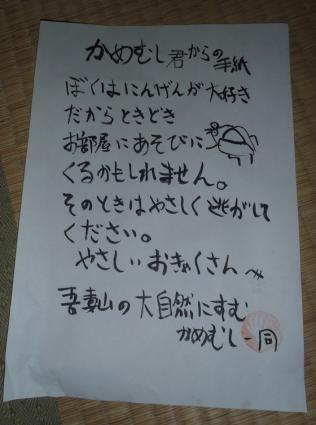 かめむし君からの手紙
ぼくはにんげんが大好き
だからときどき
お部屋にあそびに
くるかもしれません。
そのときはやさしく逃がして
ください。
やさしいおきゃくさんへ
吾妻山の大自然にすむ
かめむし一同